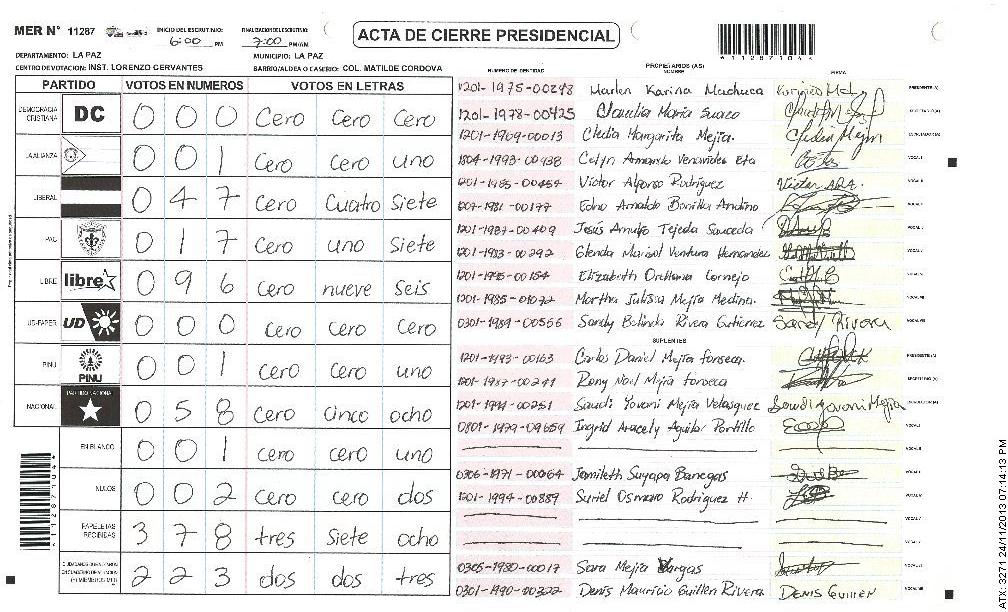 MER N° 11287
INICIO DEL ESCRUTINIO: 6:00 PM
FINALIZACION DEL ESCRUTINIO: 7:00 PM/AM
ACTA DE CIERRE PRESIDENCIAL
*112871044*
DEPARTAMENTO: LA PAZ MUNICIPIO: LA PAZ
CENTRO DE VOTACION: INST. LORENZO CERVANTES BARRIO/ALDEA O CASERIO: COL. MATILDE CORDOVA
PARTIDO VOTOS EN NUMEROS VOTOS EN LETRAS
DEMOCRACIA CRISTIANA DC 0 0 0 Cero Cero Cero
LA ALIANZA 0 0 1 Cero Cero uno
LIBERAL 0 4 7 Cero Cuatro Siete
PAC 0 1 7 Cero uno Siete
LIBRE libre 0 9 6 Cero nueve Seis
UD-FAPER UD 0 0 0 Cero Cero Cero
PINU PINU 0 0 1 Cero Cero uno
NACIONAL PARTIDO NACIONAL 0 5 8 Cero Cinco ocho
EN BLANCO 0 0 1 Cero Cero uno
NULOS 0 0 2 Cero Cero dos
PAPELETAS RECIBIDAS 3 7 8 tres Siete ocho
2 2 3 dos dos tres
NUMERO DE IDENTIDAD PROPIETARIOS (AS) NOMBRE FIRMA
1201-1975-00248 Marlen Karina Machuca PRESIDENTE (A)
1201-1978-00425 Claudia Maria Suazo SECRETARIO (A)
1201-1909-00013 Cledia Margarita Mejia. Cledia Mejia ESCRUTADOR (A)
1804-1993-00938 VOCAL I
1201-1985-00454 Victor Alfonso Rodriguez VOCAL II
Edno Arnaldo Bonilla Andino
1201-1987-00409 Jesús Arnulfo Tejeda Sauceda
1201-1983-00292 Glenda Marisol Ventura Hernandez
Elizabeth Orellana Cornejo
1201-1985-01072 Martha Julissa Mejía Medina.
0301-1989-00566 Sandy Belinda Rivera Gutierrez Sandy Rivera
SUPLENTES
1201-1993-00163 Carlos Daniel Mejia Fonseca. PRESIDENTE (A)
1201-1987-00241 Rony Noel Mejia Fonseca SECRETARIO (A)
Saudi Yovani Mejia Velasquez Saudi Yovani Mejia
0801-1979-09659 Ingrid Aracely Aguilar Portillo
0306-1971-00064 Jamileth Suyapa Banegas
1201-1994-00889 Suriel Osmaro Rodriguez H.
0305-1980-00017 Sara Mejia Vargas
0301-1990-00322 Denis Mauricio Guillen Rivera DENIS GUILLEN
ATX-3271 24/11/2013 07:14:13 PM